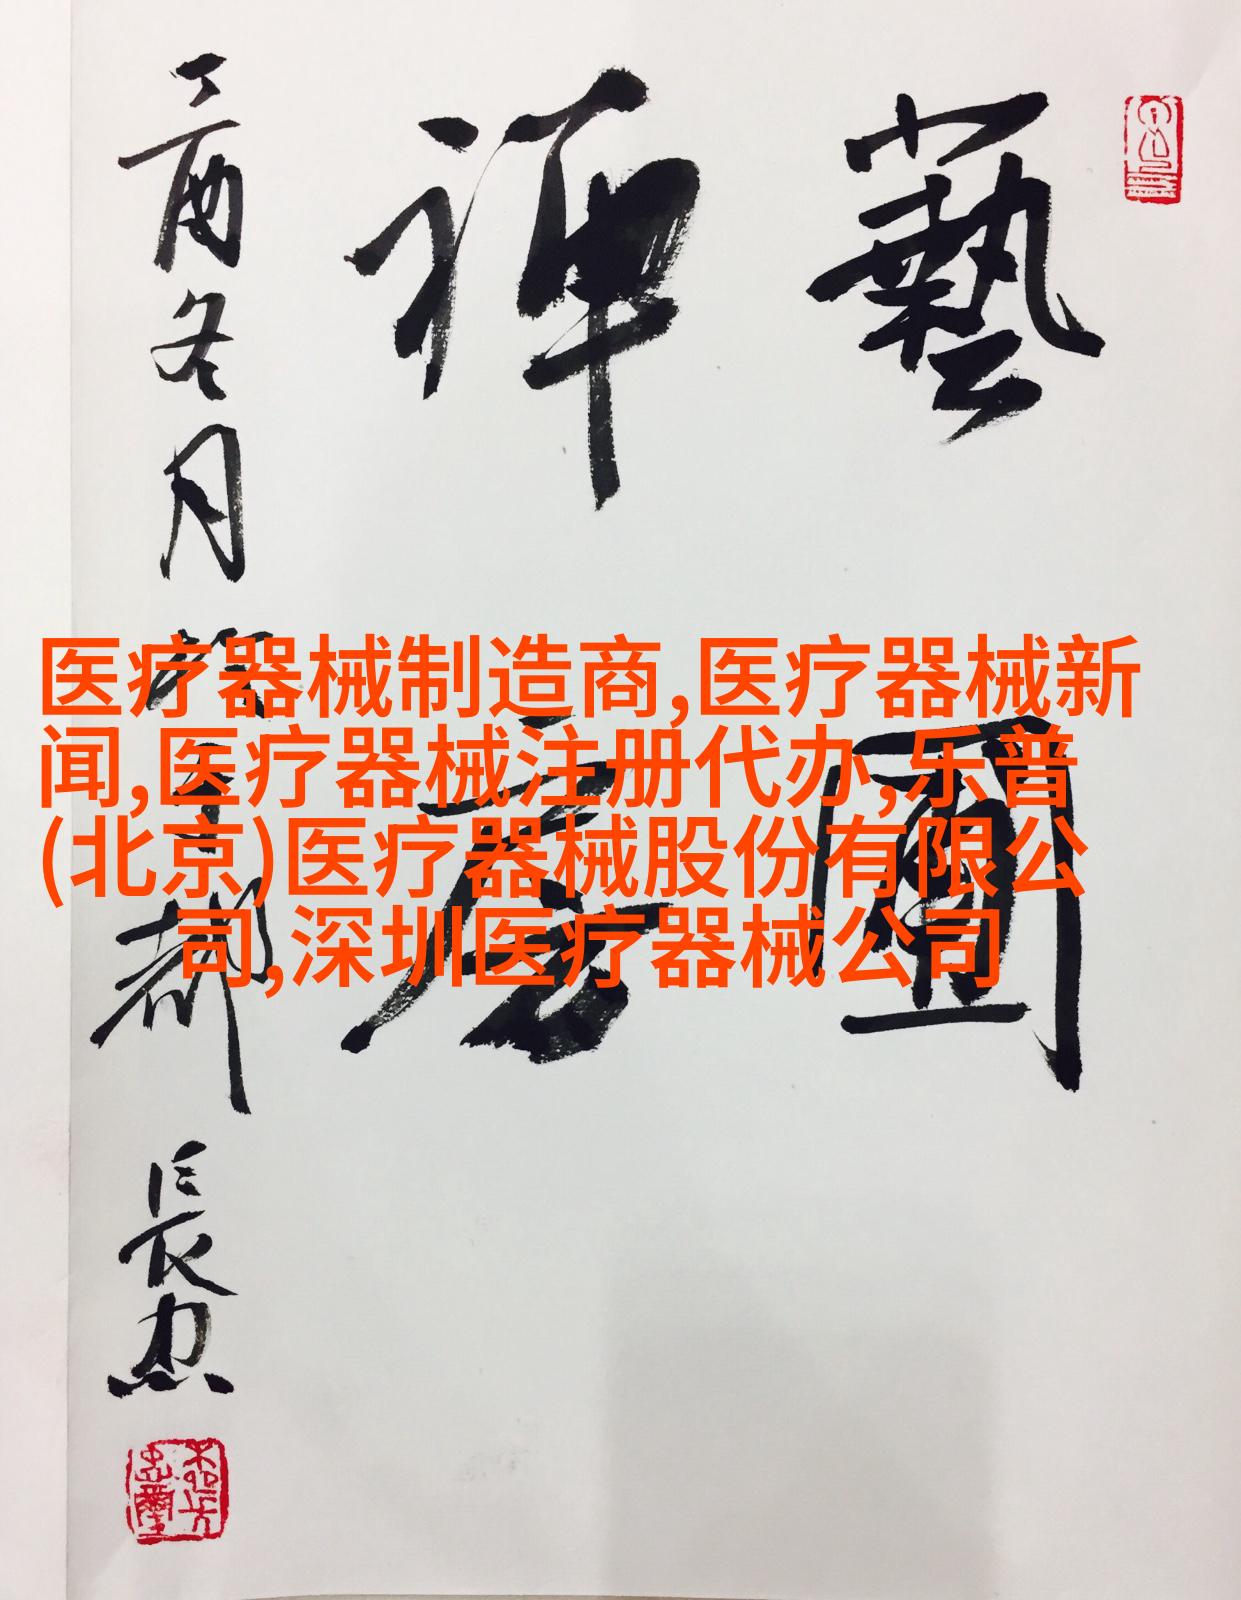 藝圃
禪房
丁酉冬月
都
長忠
医疗器械制造商,医疗器械新
闻,医疗器械注册代办,乐普
(北京)医疗器械股份有限公
司,深圳医疗器械公司